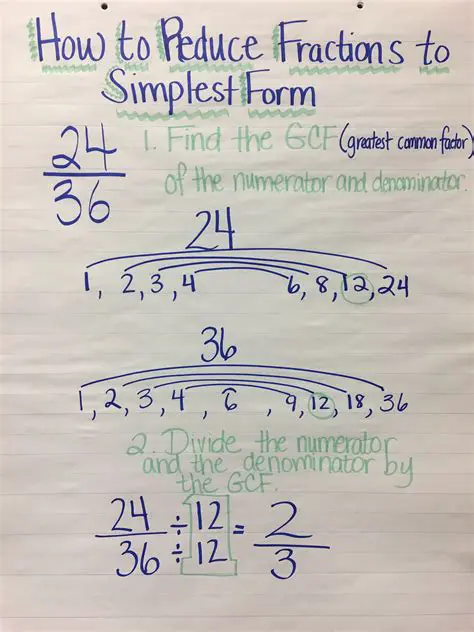 How to Reduce Fractions to
Simplest Form
24
36
1. Find the GCF (greatest common factor)
of the numerator and denominator.
24
1, 2, 3, 4 6, 8, 12, 24
36
1, 2, 3, 4, 6, 9, 12, 18, 36
2. Divide the numerator
and the denominator by
the GCF.
24 ÷ 12 = 2
36 ÷ 12 3